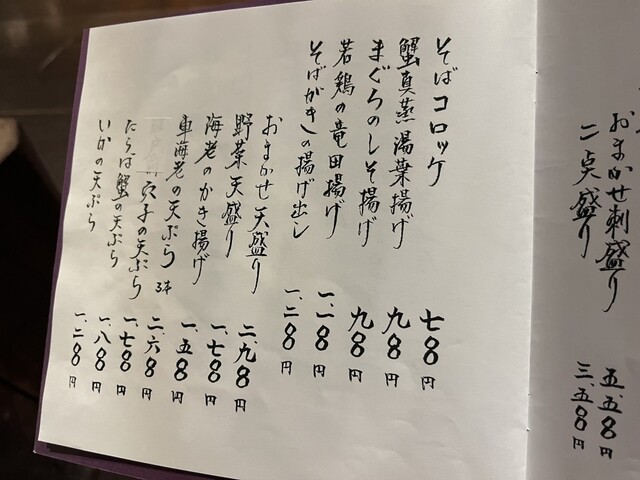 おまかせ刺盛り 五、五八〇円
二点盛り 三、五八〇円
そばコロッケ 七八〇円
蟹真蒸湯葉揚げ 九八〇円
まぐろのしそ揚げ 九八〇円
若鶏の竜田揚げ 一、一八〇円
そばがきの揚げ出し 一、二八〇円
おまかせ天盛り 二、九八〇円
野菜天盛り 一、七八〇円
海老のかき揚げ 一、五八〇円
車海老の天ぷら 3本 二、六八〇円
穴子の天ぷら 一、七八〇円
たらば蟹の天ぷら 一、八八〇円
いかの天ぷら 一、二八〇円